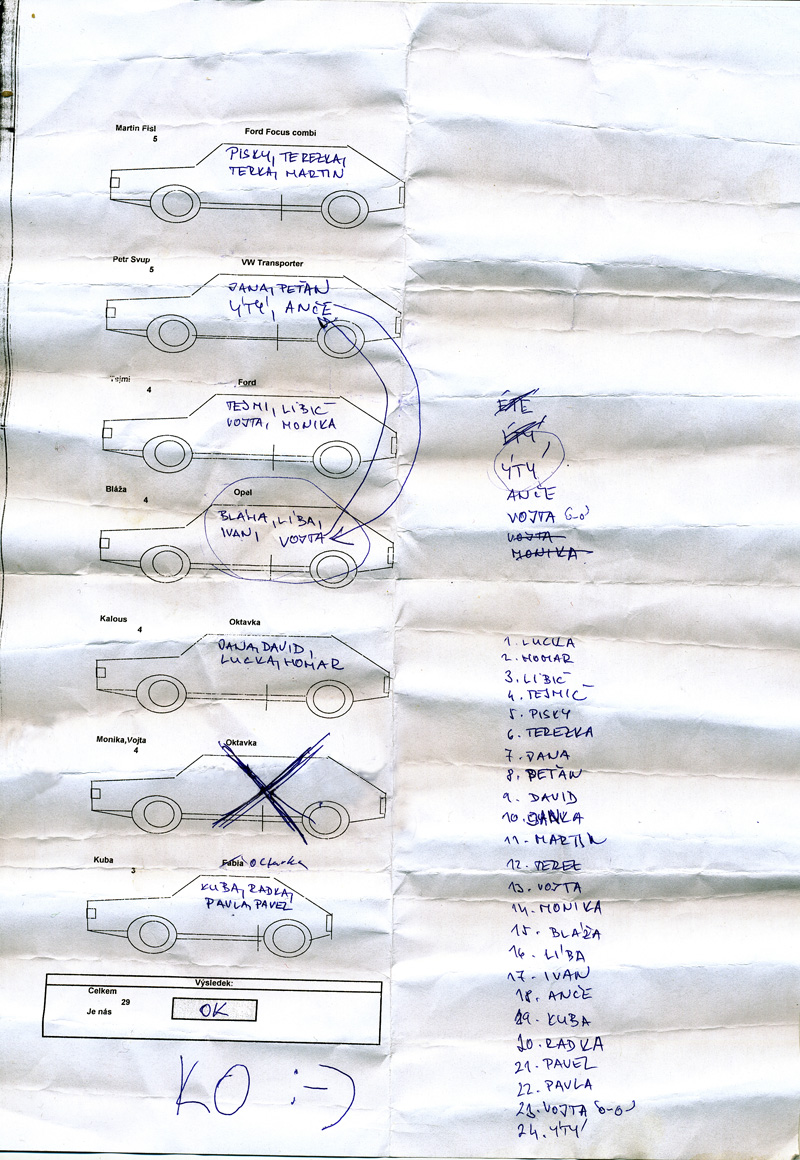 Martin Fisl
5
Ford Focus combi
PISKY, TEREZKA,
TERKA, MARTIN
Petr Svup
5
VW Transporter
DANA, PEŤAN
ÝTÝ, ANČE
Tejmi
4
Ford
TEJMI, LIBIČ
VOJTA, MONIKA
Bláža
4
Opel
BLÁŽA, LÍBA,
IVAN, VOJTA
Kalous
4
Oktavka
DANA, DAVID,
LUCKA, HOMAR
Monika,Vojta
4
Oktavka
Kuba
3
Fabia Octavka
KUBA, RADKA,
PAVLA, PAVEL
Výsledek:
Celkem
29
Je nás
OK
KO :-)
ÉTÉ
ÝTÝ
ANČE
VOJTA
VOJTA
MONIKA
1. LUCKA
2. HOMAR
3. LIBIČ
4. TEJMIČ
5. PISKY
6. TEREZKA
7. DANA
8. PEŤAN
9. DAVID
10. DANKA
11. MARTIN
12. TEREZ
13. VOJTA
14. MONIKA
15. BLÁŽA
16. LÍBA
17. IVAN
18. ANČE
19. KUBA
20. RADKA
21. PAVEL
22. PAVLA
23. VOJTA
24. ÝTÝ